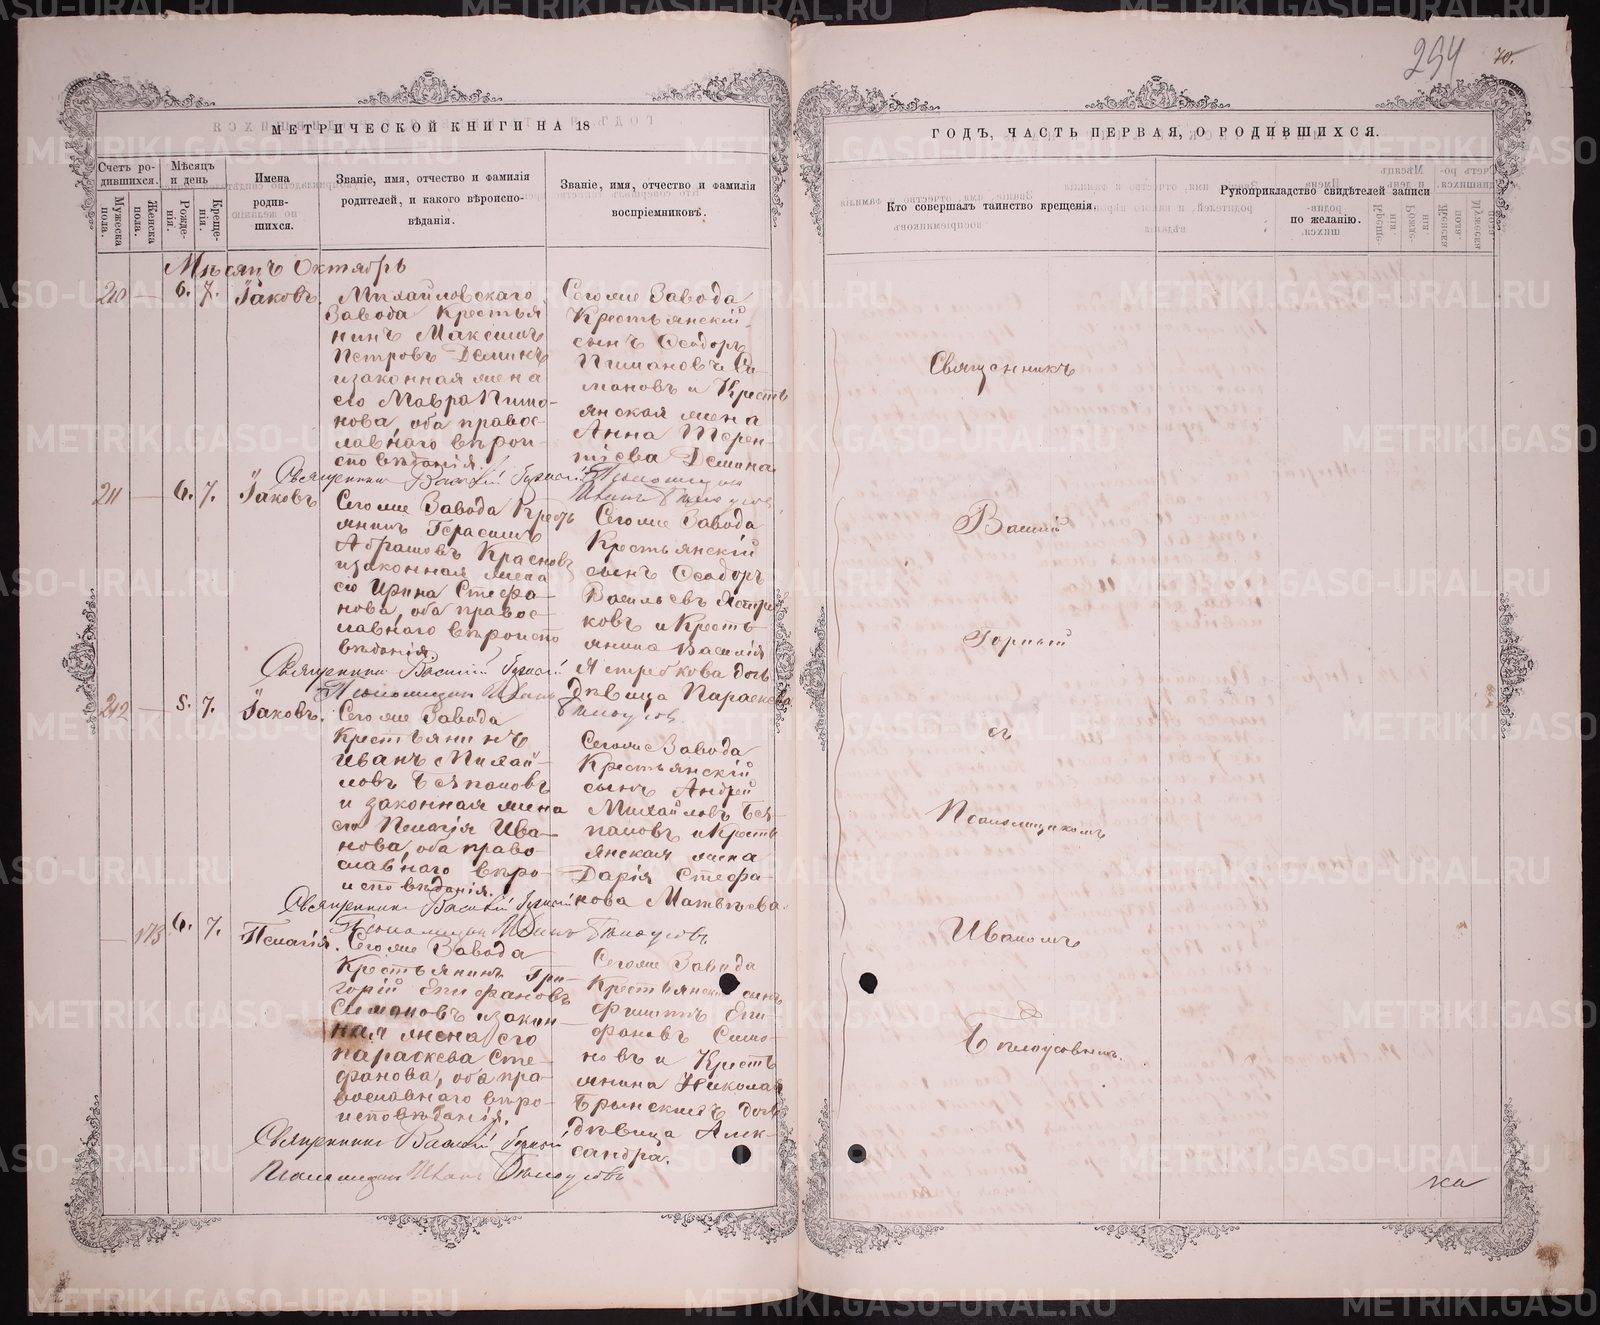 294 70.
МЕТРИЧЕСКОЙ КНИГИ НА 18
ГОДЪ, ЧАСТЬ ПЕРВАЯ, О РОДИВШИХСЯ.
Счетъ ро-
дившихся.
Мужеска
пола.
Женска
пола.
Мѣсяцъ
и день
Рожде-
нія.
Креще-
нія.
Имена
родив-
шихся.
Званіе, имя, отчество и фамилія
родителей, и какого вѣроиспо-
вѣданія.
Званіе, имя, отчество и фамилія
воспріемниковъ.
Кто совершалъ таинство крещенія.
Рукоприкладство свидѣтелей записи
по желанію.
Мѣсяцъ Октябрь
210 — 6. 7. Іаковъ.
Михайловскаго
Завода Крестья
нинъ Максимъ
Петровъ Деминъ
и законная жена
его Мавра Пимо-
нова, оба правос-
лавнаго вѣрои-
сповѣданія.
Сего же Завода
Крестьянскій
сынъ Ѳеодоръ
Пимановъ
мановъ и Кресть
янская жена
Анна Терен-
тіева Демина
Священникъ Василій Горный Псаломщикъ
Иванъ Бѣлоусовъ
211 — 6. 7. Іаковъ
Сего же Завода Кресть
янинъ Герасимъ
Абрамовъ Красновъ
и законная жена
его Ирина Стефа-
нова, оба правос-
лавнаго вѣроиспо
вѣданія.
Сего же Завода
Крестьянскій
сынъ Ѳеодоръ
Васильевъ Ястре
ковъ и Кресть
янина Василія
Ястребкова дочь
дѣвица Параскева
Священникъ Василій Горный
Псаломщикъ Иванъ Бѣлоусовъ.
212 — 5. 7. Іаковъ.
Сего же Завода
Крестьянинъ
Иванъ Михай-
ловъ Бѣляповъ
и законная жена
его Пелагія Ива-
нова, оба право-
славнаго вѣро-
исповѣданія.
Сего же Завода
Крестьянскій
сынъ Андрей
Михайловъ
паповъ и Кресть
янская жена
Дарія Стефа-
нова Матвѣева.
Священникъ Василій Горный
Псаломщикъ Иванъ Бѣлоусовъ
— 173 6. 7. Пелагія.
Сего же Завода
Крестьянинъ Гри-
горій Епифановъ
Симоновъ и закон-
ная жена его
Параскева Сте-
фанова, оба пра-
вославнаго вѣро-
исповѣданія.
Сего же Завода
Крестьянскій сынъ
Филиппъ Епи-
фановъ Симо-
новъ и Кресть
янина Николая
Брынскихъ дочь
дѣвица Алек-
сандра.
Священникъ Василій Горный
Псаломщикъ Иванъ Бѣлоусовъ
Священникъ
Василій
Горный
съ
Псаломщикомъ
Иваномъ
Бѣлоусовымъ.
ка
METRIKI.GASO-URAL.RU